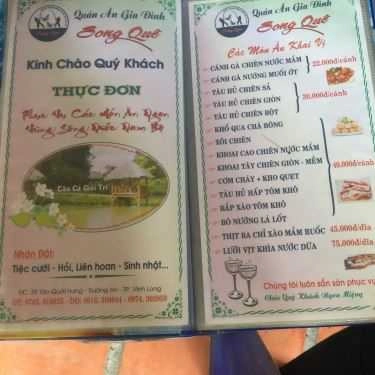 Quán Ăn Gia Đình
Song Quê
Kính Chào Quý Khách
THỰC ĐƠN
Phục Vụ Các Món Ăn Ngon
Vùng Sông Nước Nam Bộ
Câu Cá Giải Trí
Nhận Đặt:
Tiệc cưới - Hỏi, Liên hoan - Sinh nhật...
Quán Ăn Gia Đình
Song Quê
Các Món Ăn Khai Vị
CÁNH GÀ CHIÊN NƯỚC MẮM
CÁNH GÀ NƯỚNG MUỐI ỚT
22.000đ/cánh
TÀU HỦ CHIÊN SẢ
TÀU HỦ CHIÊN GIÒN
TÀU HỦ CHIÊN BỘT
KHỔ QUA CHÀ BÔNG
XÔI CHIÊN
KHOAI CAO CHIÊN NƯỚC MẮM
KHOAI TÂY CHIÊN GIÒN - MỀM
CƠM CHÁY + KHO QUẸT
TÀU HỦ HẤP TÔM KHÔ
BẮP XÀO TÔM KHÔ
BÒ NƯỚNG LÁ LỐT
THỊT BA CHỈ XÀO MẮM RUỐC 45.000đ/dĩa
LƯỠI VỊT KHÌA NƯỚC DỪA 75.000đ/dĩa
Chúng tôi luôn sẵn sàn phục vụ
Chúc Quý Khách Ngon Miệng